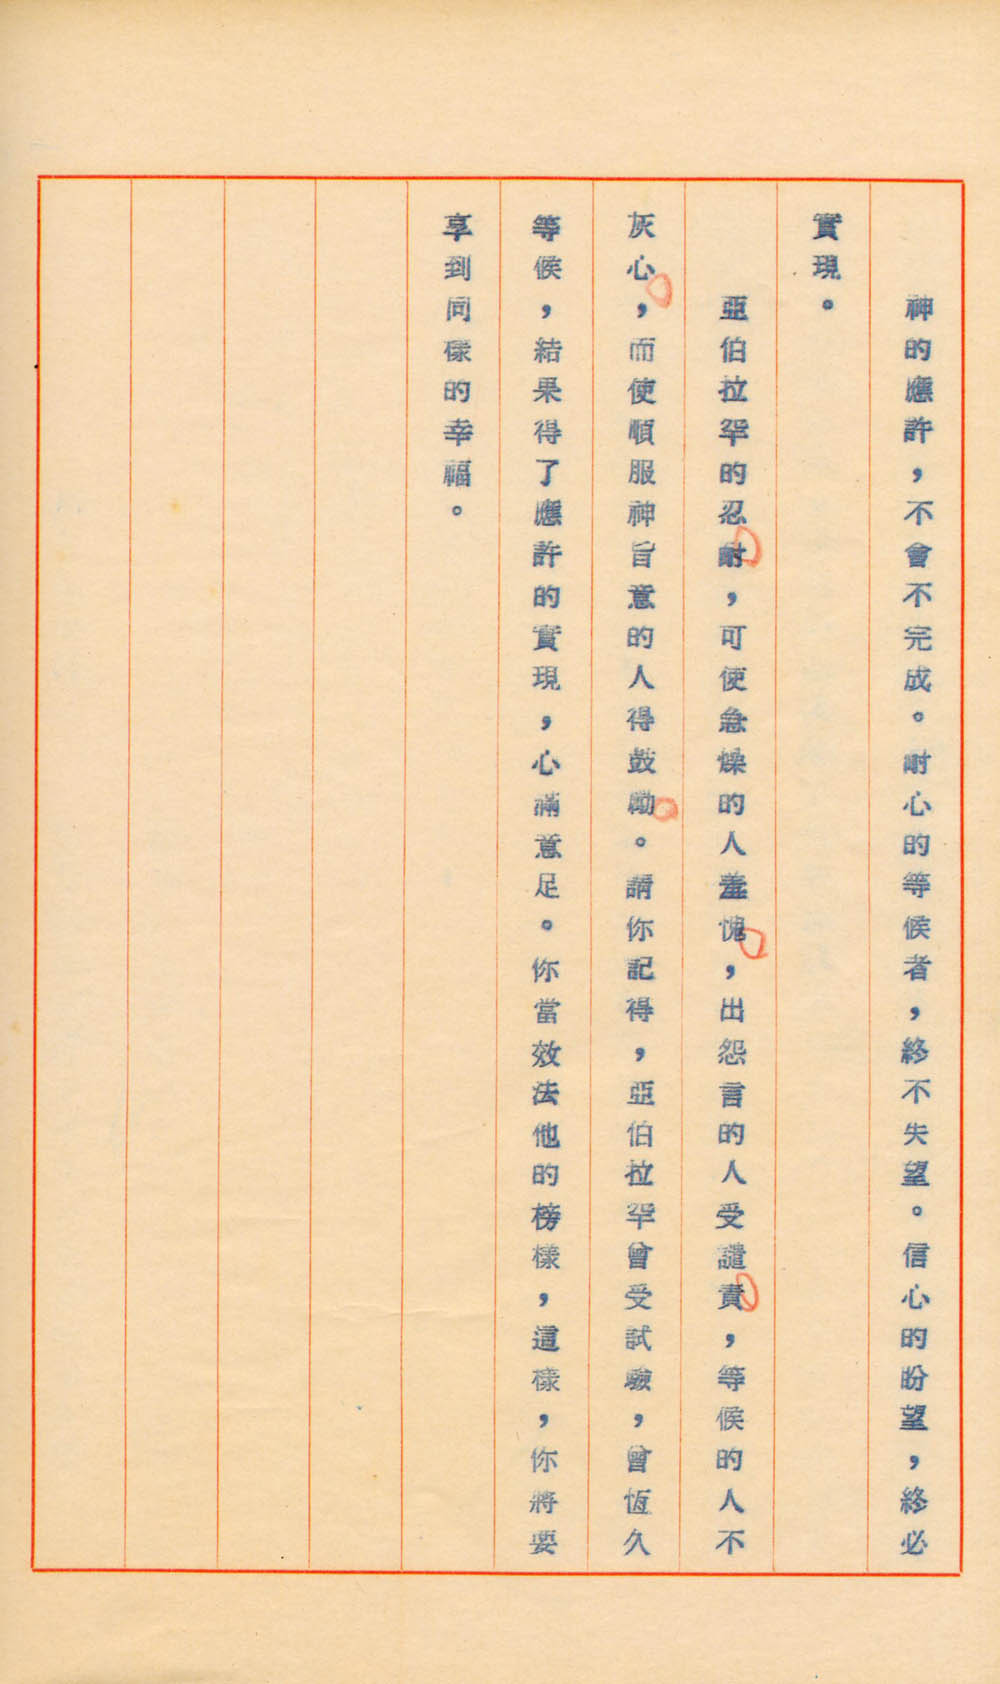 神的應許，不會不完成。耐心的等候者，終不失望。信心的盼望，終必
實現。
亞伯拉罕的忍耐，可使急燥的人羞愧，出怨言的人受譴責，等候的人不
灰心，而使順服神旨意的人得鼓勵。請你記得，亞伯拉罕曾受試驗，曾恆久
等候，結果得了應許的實現，心滿意足。你當效法他的榜樣，這樣，你將要
享到同樣的幸福。